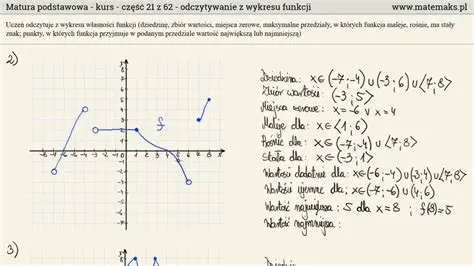 Matura podstawowa - kurs - część 21 z 62 - odczytywanie z wykresu funkcji
www.matemaks.pl
Uczeń odczytuje z wykresu własności funkcji (dziedzinę, zbiór wartości, miejsca zerowe, maksymalne przedziały, w których funkcja maleje, rośnie, ma stały
znak; punkty, w których funkcja przyjmuje w podanym przedziale wartość największą lub najmniejszą)
2)
f
Dziedzina: x∈(-7;-4)∪(-3;6)∪⟨7;8⟩
Zbiór wartości: (-3;5⟩
Miejsca zerowe: x=-6 ∨ x=4
Maleje dla: x∈⟨1;6)
Rośnie dla: x∈(-7;-4)∪⟨7;8⟩
Stała dla: x∈(-3;1⟩
Wartości dodatnie dla: x∈(-6;-4)∪(-3;4)∪⟨7;8⟩
Wartości ujemne dla: x∈(-7;-6)∪(4;6)
Wartość największa: 5 dla x=8 ; f(8)=5
Wartość najmniejsza:
3)